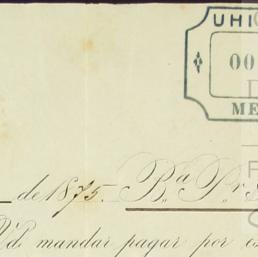 UHI
00
ME
de 1875. B.ª P.r
V.d mandar pagar por es